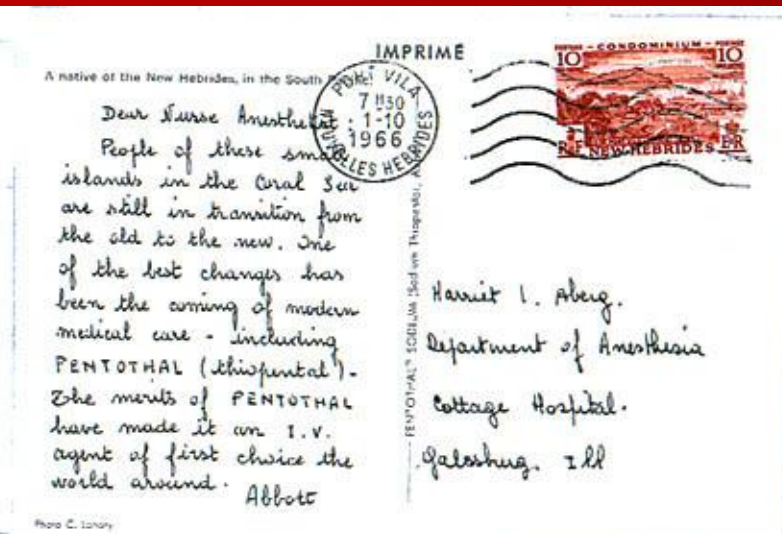 IMPRIMÉ
A native of the New Hebrides, in the South
PORT VILA
7 H30
1-10
1966
NOUVELLES HEBRIDES
POSTAGE - CONDOMINIUM - POSTAGE
10 10
RF NEW HEBRIDES ER
Dear Nurse Anesthetist
People of these small
islands in the Coral Sea
are still in transition from
the old to the new. One
of the best changes has
been the coming of modern
medical care - including
PENTOTHAL (thiopental) -
The merits of PENTOTHAL
have made it an I.V.
agent of first choice the
world around.
Abbott
PENTOTHAL® SODIUM (Sodium Thiopental,
Harriet L. Aberg.
Department of Anesthesia
Cottage Hospital.
Galesburg. Ill
Photo C.